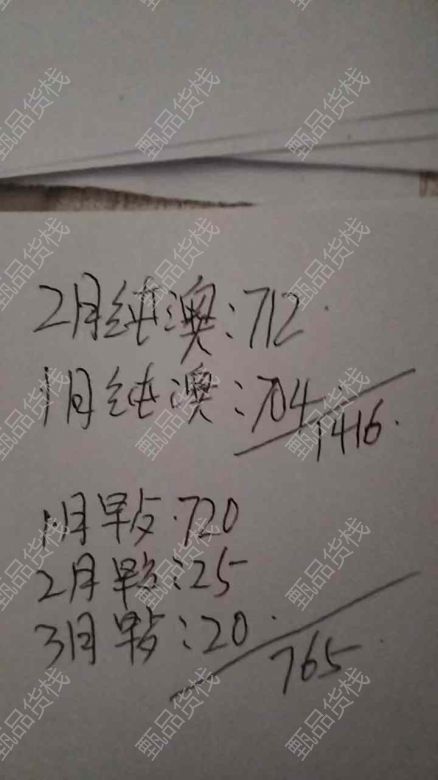 2月纯澳:712
1月纯澳:704
1416
1月早点:720
2月早点:25
3月早点:20
765
甄品货栈